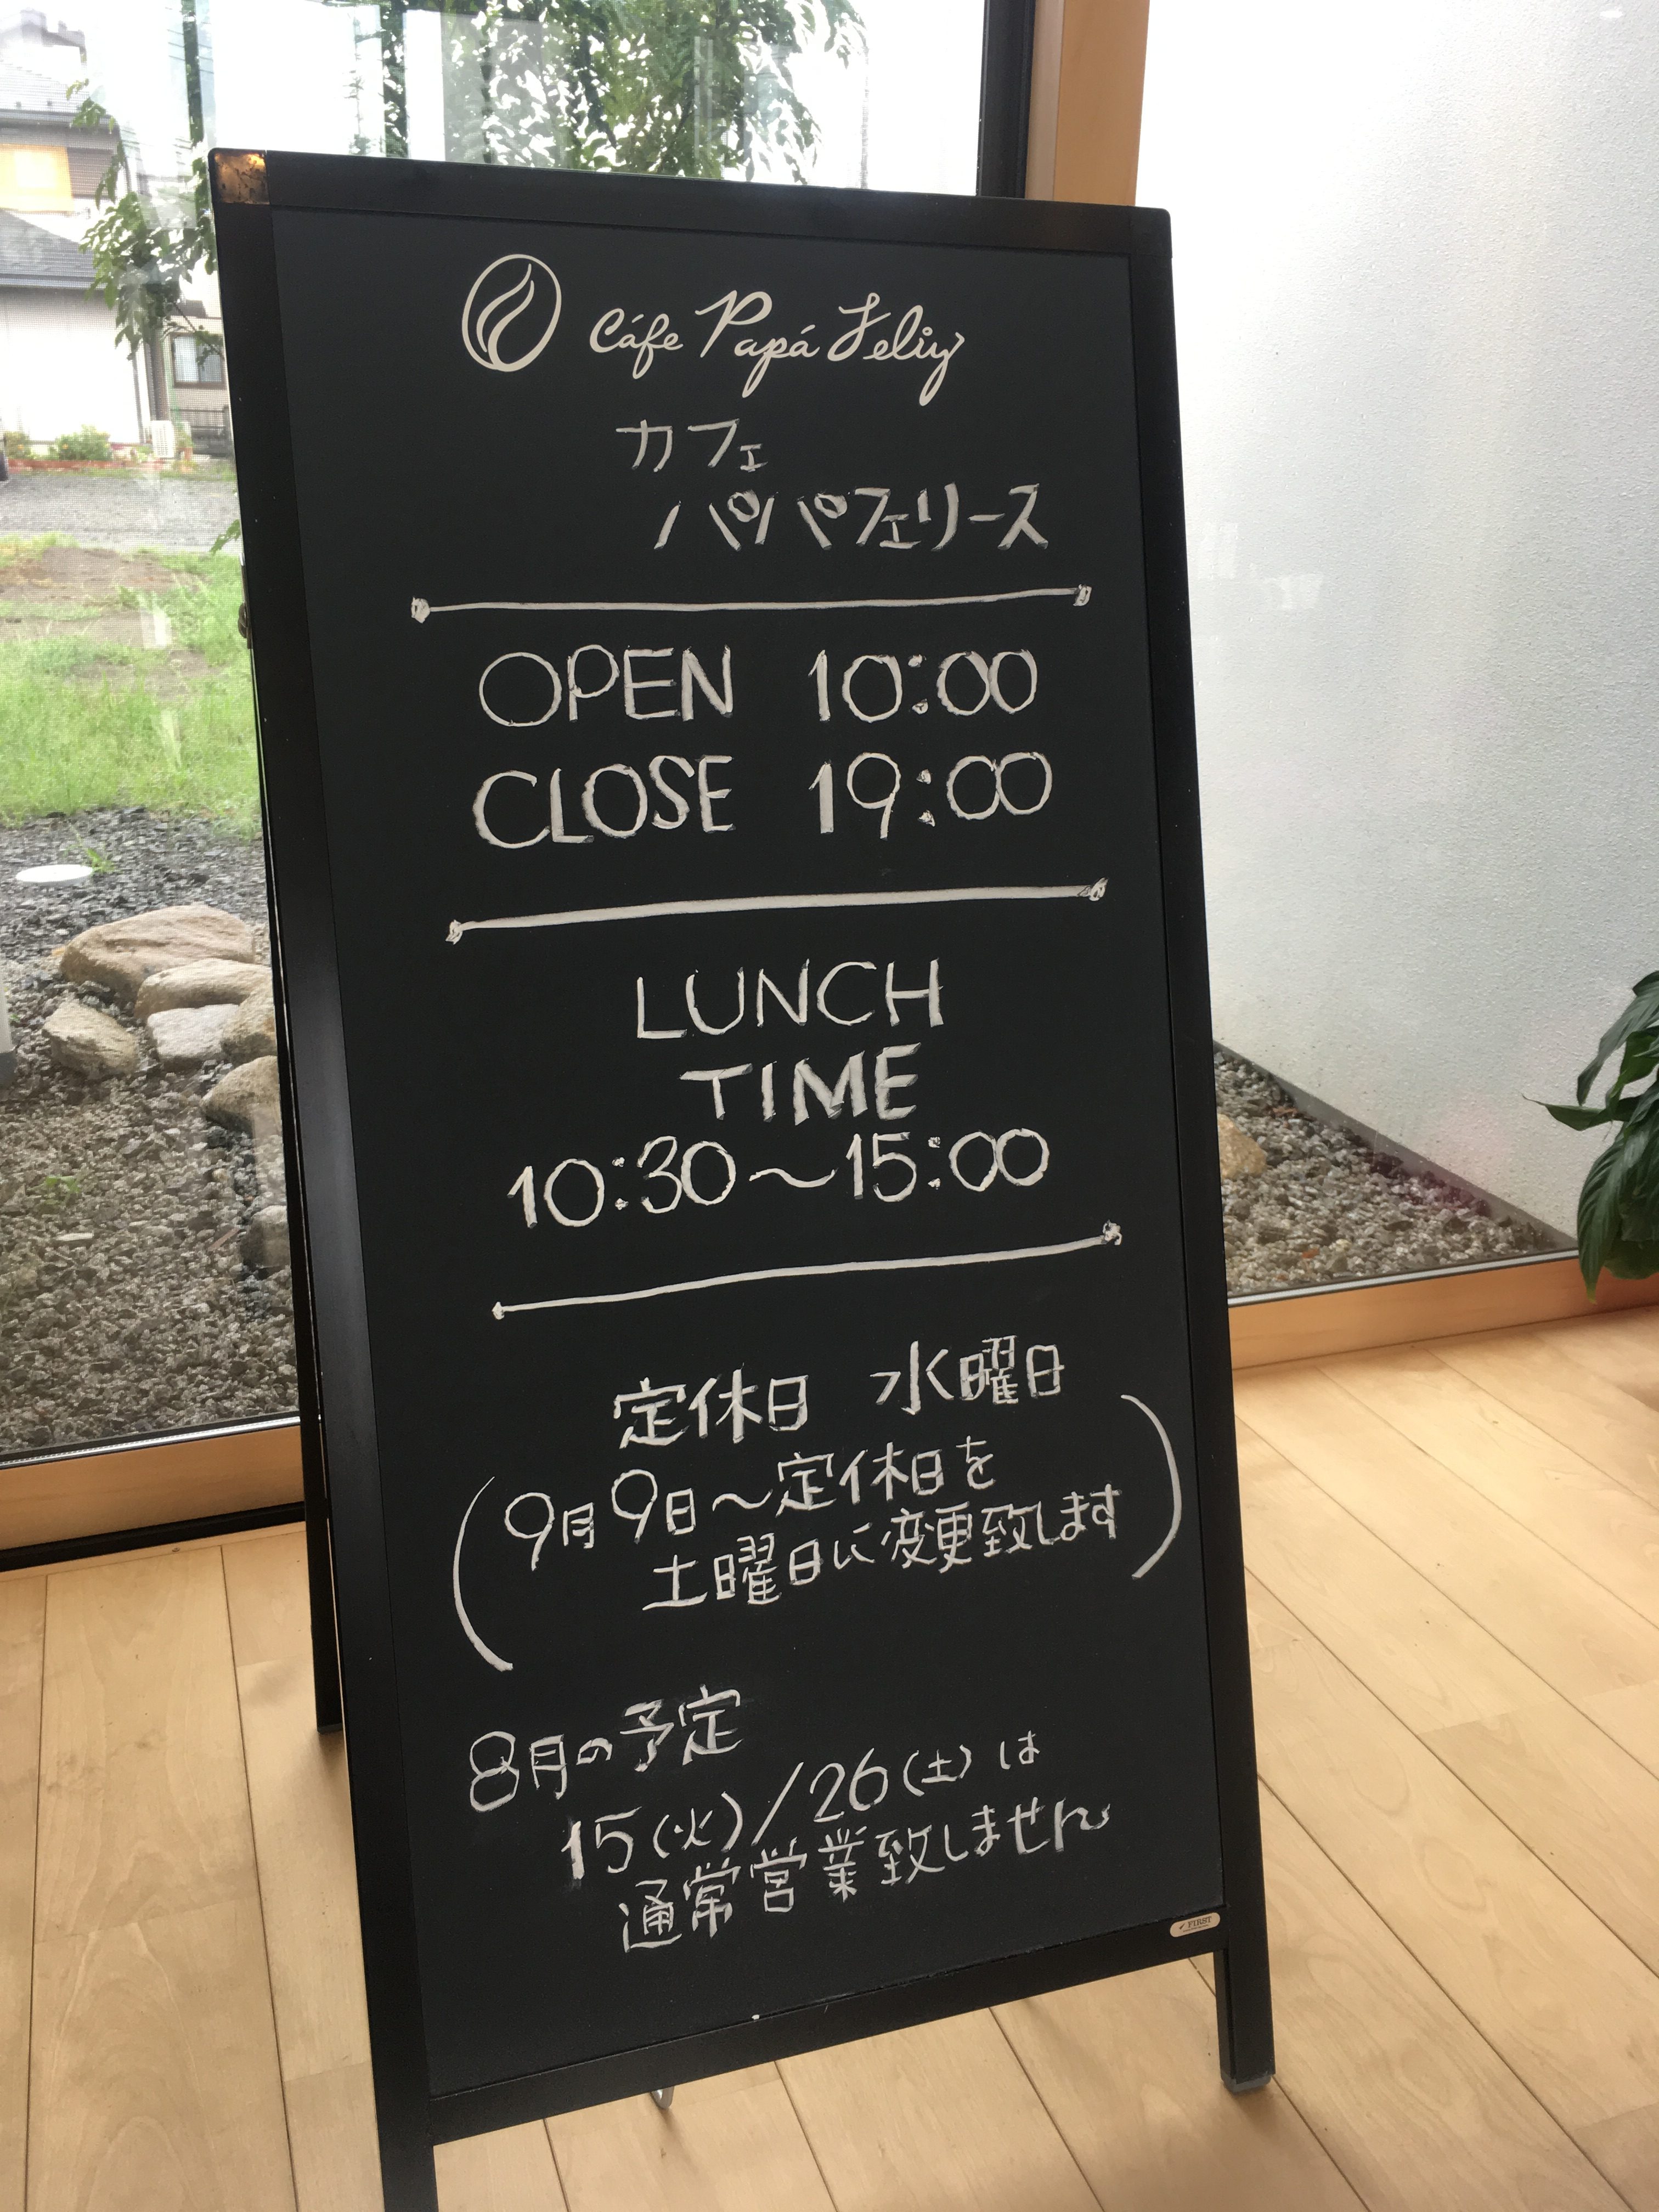 Cáfe Papá Feliz
カフェ
パパフェリース
OPEN 10:00
CLOSE 19:00
LUNCH
TIME
10:30～15:00
定休日 水曜日
(9月9日～定休日を
土曜日に変更致します)
8月の予定
15(火)/26(土)は
通常営業致しません
FIRST